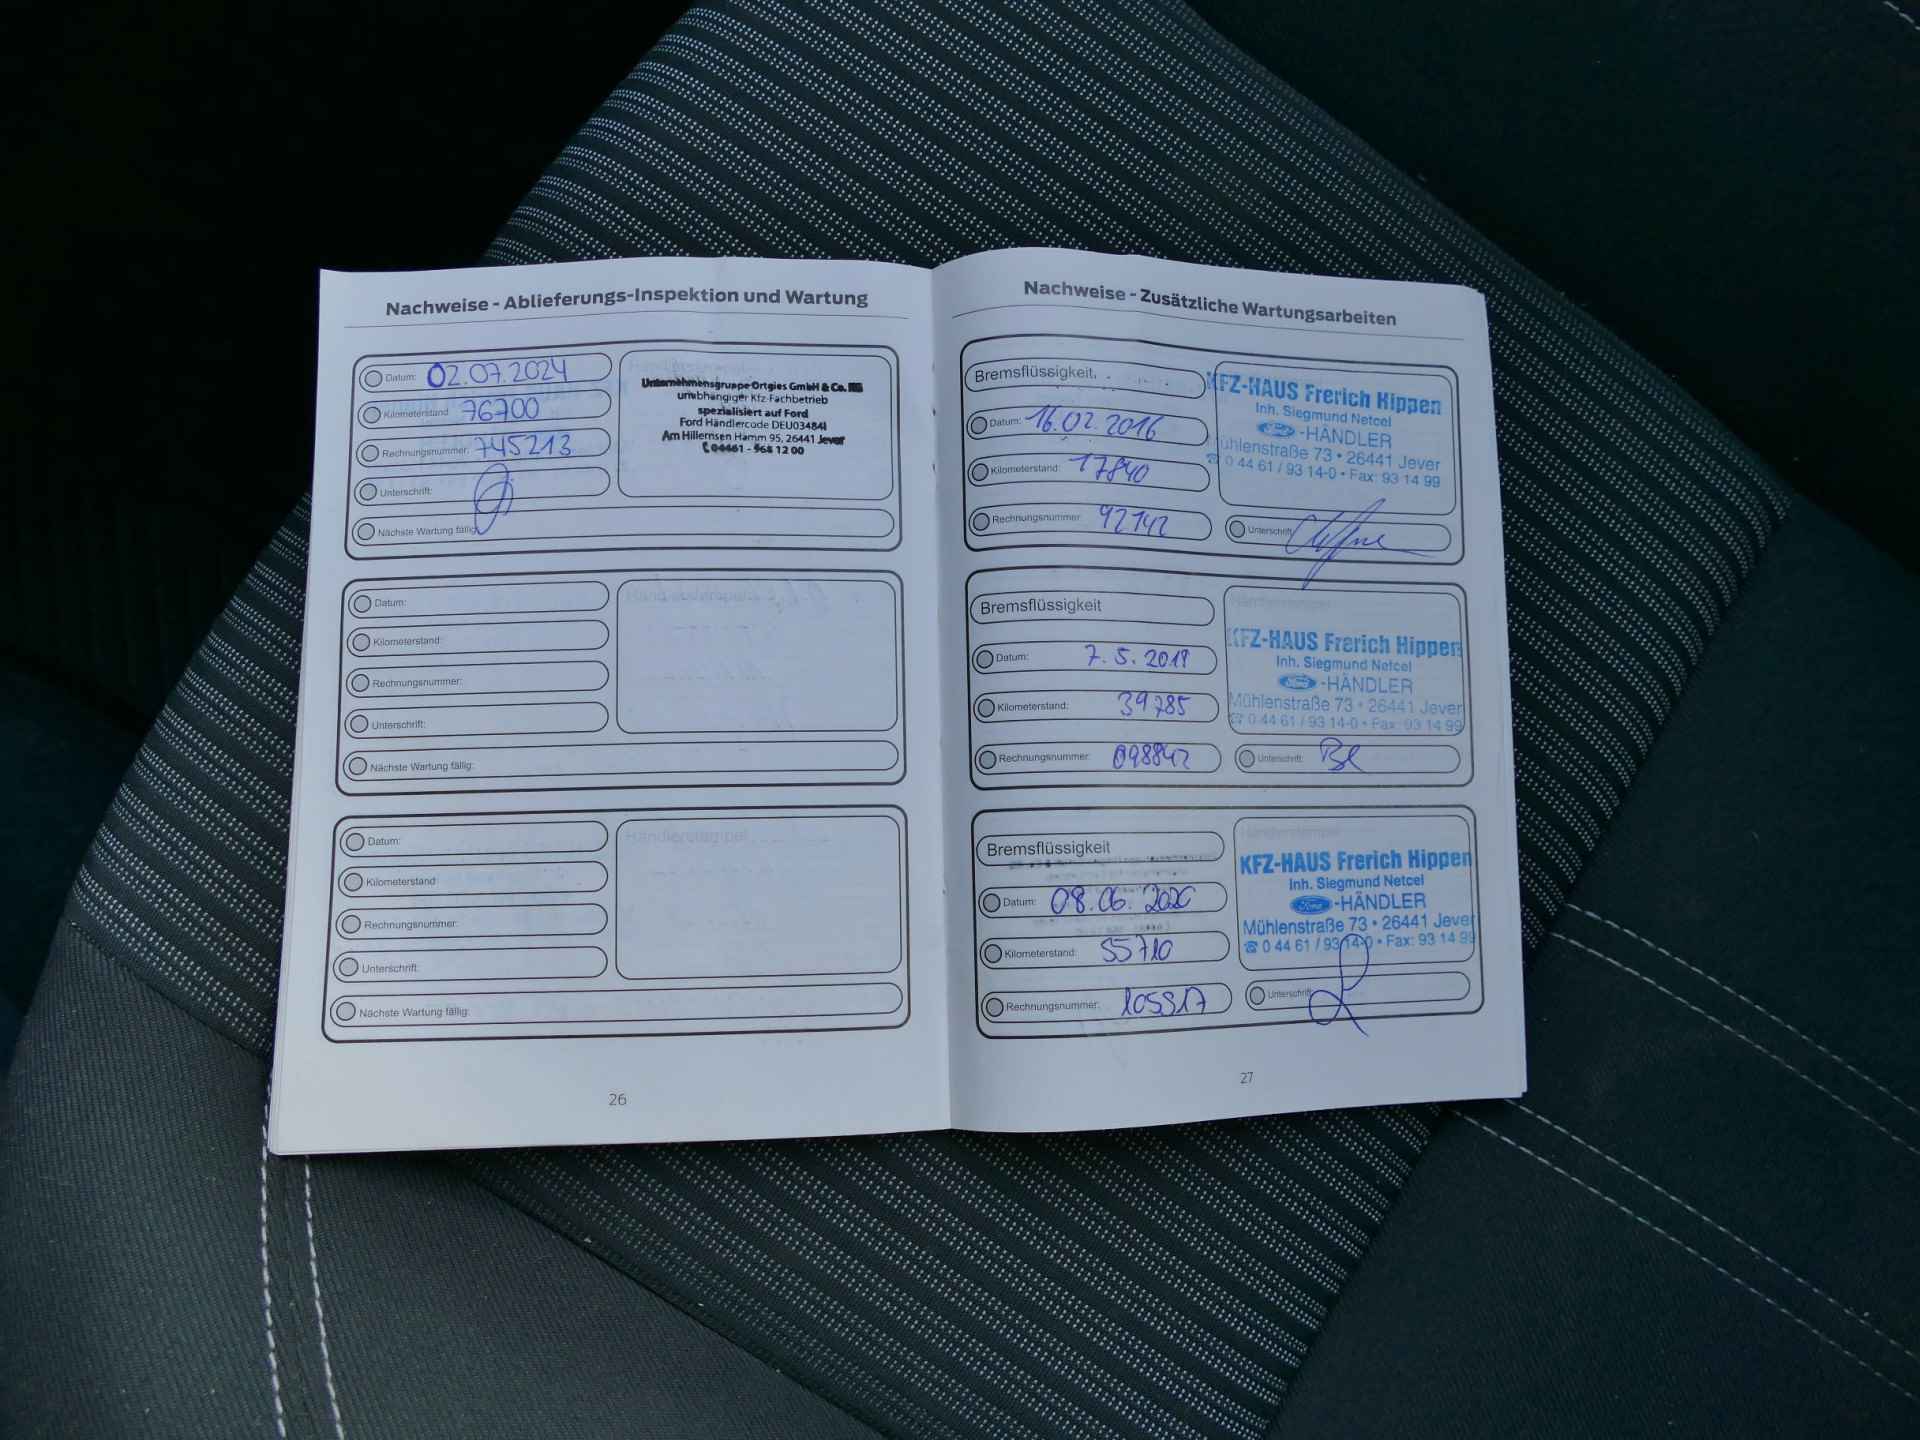 Nachweise - Ablieferungs-Inspektion und Wartung
Datum: 02.07.2024
Kilometerstand 76700
Rechnungsnummer: 745213
Unterschrift:
Nächste Wartung fällig:
Unternehmensgruppe Ortgies GmbH & Co. KG
unabhängiger Kfz-Fachbetrieb
spezialisiert auf Ford
Ford Händlercode DEU03484I
Am Hillernsen Hamm 95, 26441 Jever
04461 - 964 12 00
Datum:
Kilometerstand:
Rechnungsnummer:
Unterschrift:
Nächste Wartung fällig:
Datum:
Kilometerstand:
Rechnungsnummer:
Unterschrift:
Nächste Wartung fällig:
Händlerstempel
26
Nachweise - Zusätzliche Wartungsarbeiten
Bremsflüssigkeit
Datum: 16.02.2016
Kilometerstand: 17840
Rechnungsnummer: 92142
KFZ-HAUS Frerich Hippen
Inh. Siegmund Netcel
Ford -HÄNDLER
Mühlenstraße 73 • 26441 Jever
☎ 0 44 61 / 93 14-0 • Fax: 93 14 99
Unterschrift:
Bremsflüssigkeit
Datum: 7.5.2018
Kilometerstand: 39785
Rechnungsnummer: 098842
Händlerstempel
KFZ-HAUS Frerich Hippen
Inh. Siegmund Netcel
Ford -HÄNDLER
Mühlenstraße 73 • 26441 Jever
☎ 0 44 61 / 93 14-0 • Fax: 93 14 99
Unterschrift:
Bremsflüssigkeit
Datum: 08.06.2020
Kilometerstand: 55710
Rechnungsnummer: 105917
Händlerstempel
KFZ-HAUS Frerich Hippen
Inh. Siegmund Netcel
Ford -HÄNDLER
Mühlenstraße 73 • 26441 Jever
☎ 0 44 61 / 93 14-0 • Fax: 93 14 99
Unterschrift:
27